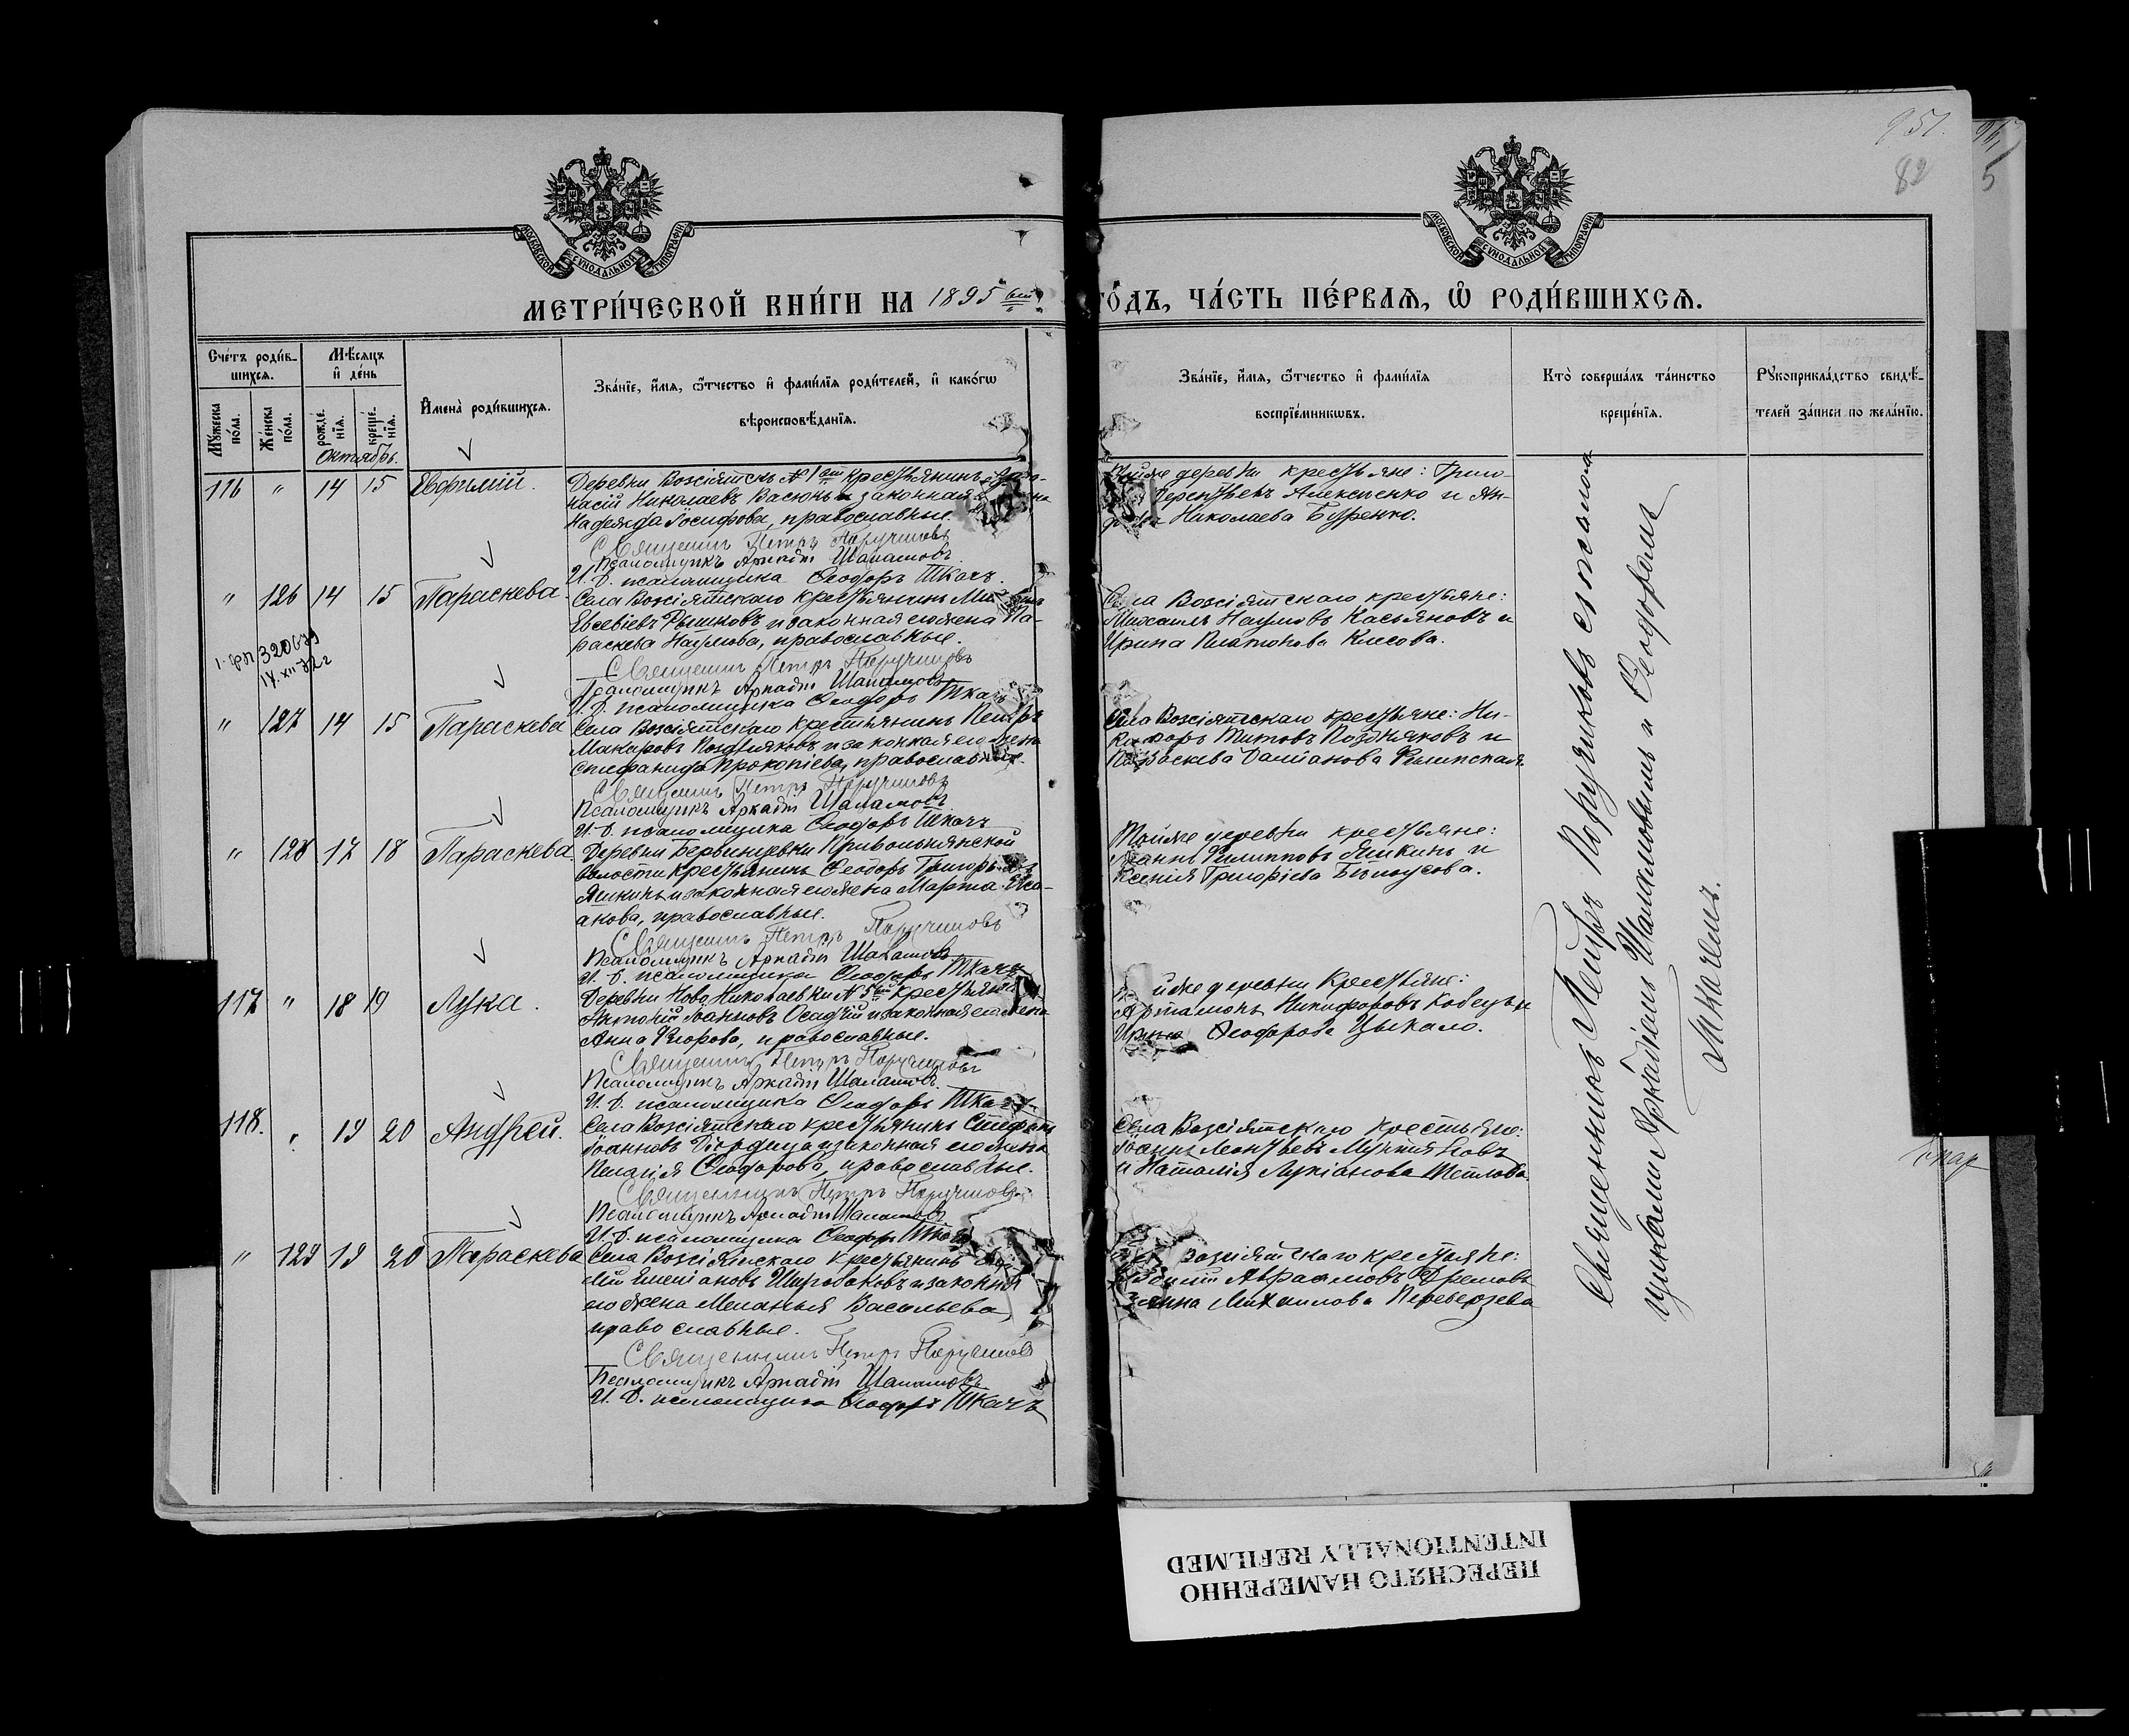 951.
82
96
5
МОСКОВСКОЙ СѴНОДАЛЬНОЙ ТИПОГРАФІИ
МОСКОВСКОЙ СѴНОДАЛЬНОЙ ТИПОГРАФІИ
МЕТРИ́ЧЕСКОЙ КНИ́ГИ НА 1895 ый
ГО́ДЪ, ЧА́СТЬ ПЕ́РВАѦ, Ѡ҆ РОДИ́ВШИХСѦ.
Сче́тъ роди́в-
шихсѧ.
Мꙋ́жеска по́ла.
Же́нска по́ла.
Мѣ́сѧцъ
и҆ де́нь
рожде́нїѧ.
креще́нїѧ.
И҆мена̀ роди́вшихсѧ.
Зва́нїе, и҆́мѧ, ѻ҆́тчество и҆ фами́лїѧ роди́телей, и҆ како́гѡ
вѣроисповѣ́данїѧ.
Зва́нїе, и҆́мѧ, ѻ҆́тчество и҆ фами́лїѧ
воспрїе́мникѡвъ.
Кто̀ соверша́лъ та́инство
креще́нїѧ.
Рꙋкоприкла́дство свидѣ́-
телей за́писи по жела́нїю.
Октябрь.
116 " 14 15 Евфимій.
Деревни Возсіятскъ № 1ый крестьянинъ
насій Николаевъ Васюнь и законная
Надежда Іосифова, православные.
Священникъ Петръ Поручиковъ
Псаломщикъ Аркадій Шаламовъ
И. д. псаломщика Ѳеодоръ Ткачъ.
деревни крестьяне: Григо-
Терентьевъ Алексѣенко и
Николаева Буренко.
" 126 14 15 Параскева.
Села Возсіятскаго крестьянинъ
Евсевіевъ Рышковъ и законная его жена Па-
раскева Наумова, православные.
Священникъ Петръ Поручиковъ
Псаломщикъ Аркадій Шаламовъ
И. д. псаломщика Ѳеодоръ Ткачъ
Села Возсіятскаго крестьяне:
Михаилъ Наумовъ Касьяновъ и
Ирина Платонова
320679
14.XII 72 г
" 127 14 15 Параскева
Села Возсіятскаго крестьянинъ Петръ
Макаровъ Поздняковъ и законная его жена
Стефанида Прокопіева, православные.
Священникъ Петръ Поручиковъ
Псаломщикъ Аркадій Шаламовъ
И. д. псаломщика Ѳеодоръ Ткачъ
Села Возсіятскаго крестьяне: Ни-
кифоръ Титовъ Поздняковъ и
Параскева Даміанова
" 128 17 18 Параскева
Деревни Первенцевки Привольнянской
волости крестьянинъ Ѳеодоръ Григорьевъ
Яшкинъ и законная его жена Марѳа Иса-
акова, православные.
Священникъ Петръ Поручиковъ
Псаломщикъ Аркадій Шаламовъ
И. д. псаломщика Ѳеодоръ Ткачъ
Тойже деревни крестьяне:
Іоаннъ Филипповъ Яшкинъ и
Ксенія Григоріева Бѣлоусова.
117 " 18 19 Лука.
Деревни Ново Николаевки № 5ый крестьянинъ
Антоній Іоанновъ Осадчій и законная его жена
Анна Егорова, православные.
Священникъ Петръ Поручиковъ
Псаломщикъ Аркадій Шаламовъ
И. д. псаломщика Ѳеодоръ Ткачъ
деревни крестьяне:
Артамонъ Никифоровъ Кобецъ и
Ѳеодорова Цыкало.
118. " 19 20 Андрей.
Села Возсіятскаго крестьянинъ Стефанъ
Іоанновъ и законная его жена
Пелагія Ѳеодорова, православные.
Священникъ Петръ Поручиковъ
Псаломщикъ Аркадій Шаламовъ
И. д. псаломщика Ѳеодоръ Ткачъ
Села Возсіятскаго крестьяне:
Іоаннъ Леонтьевъ
и Наталія Лукіанова
" 129 19 20 Параскева
Села Возсіятскаго крестьянинъ
и законная
его жена Меланья Васильева,
православные.
Священникъ Петръ Поручиковъ
Псаломщикъ Аркадій Шаламовъ
И. д. псаломщика Ѳеодоръ Ткачъ
Возсіятскаго крестьяне:
Авраамовъ
Михаилова Переверзева
Священникъ Петръ Поручиковъ съ псалом-
щиками Аркадіемъ Шаламовымъ и Ѳеодоромъ
Ткачемъ.
ПЕРЕСНЯТО НАМЕРЕННО
INTENTIONALLY REFILMED